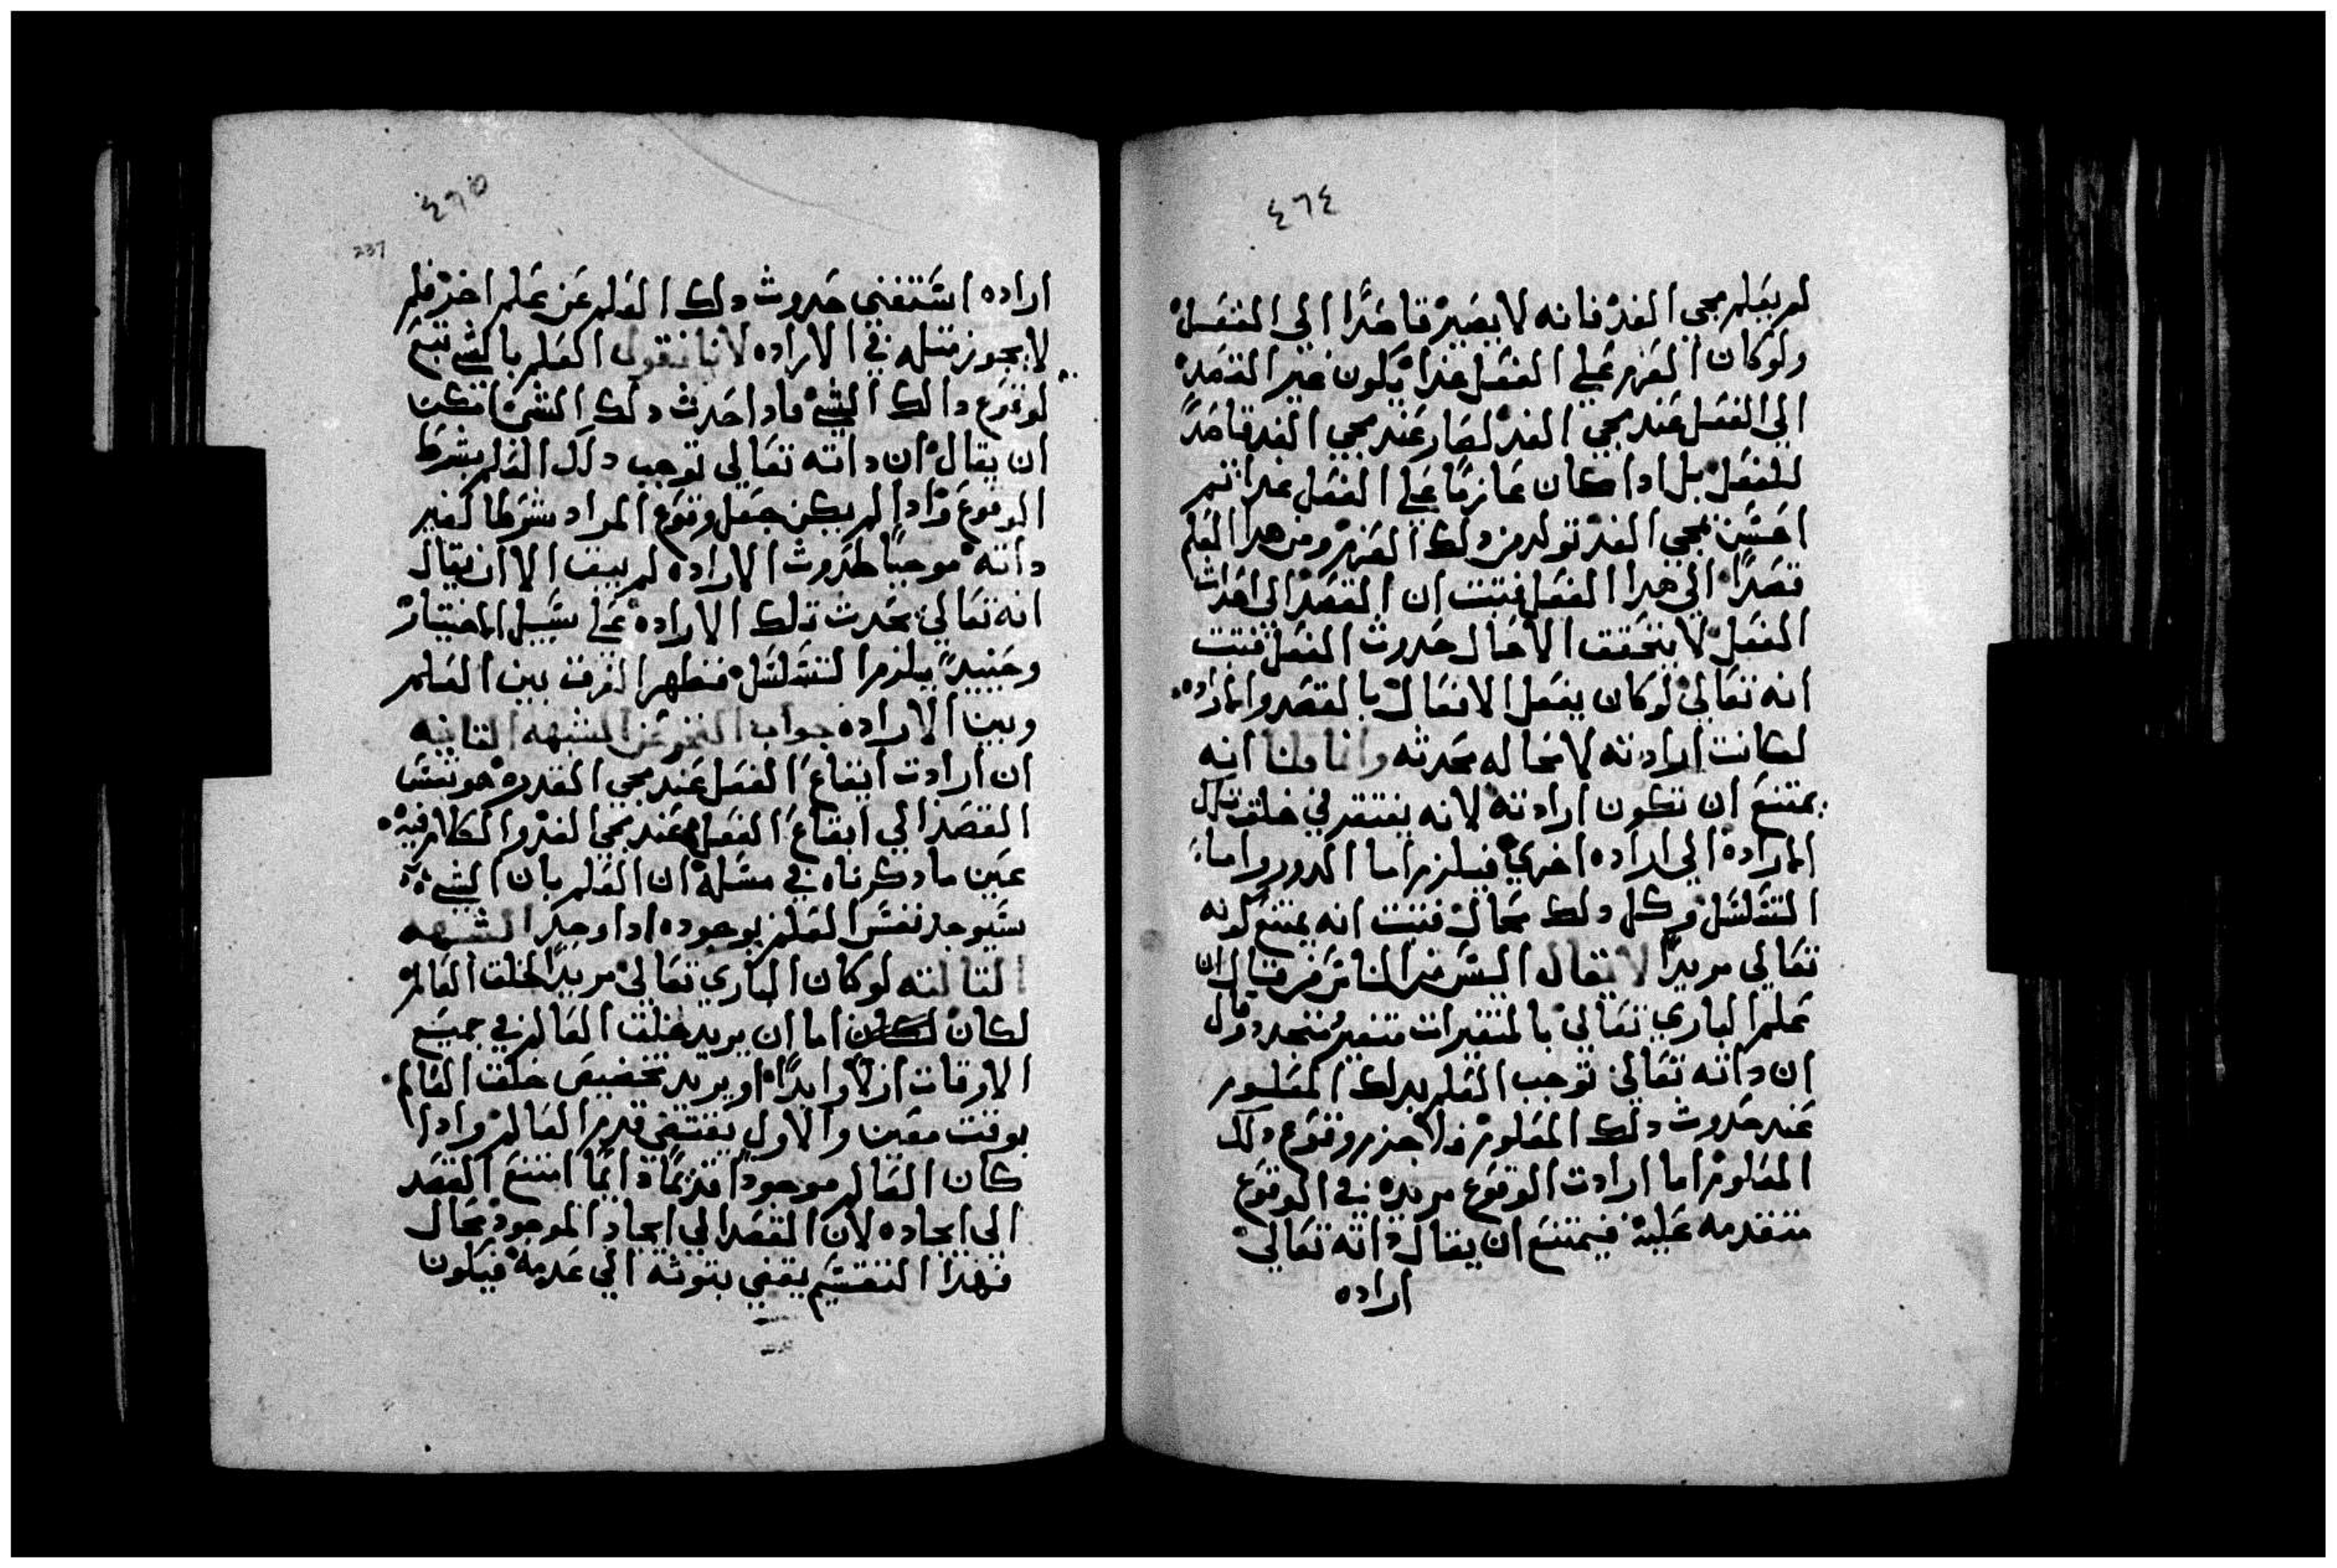 ٤٦٤
لم يعلم مجي الغد فانه لا يصير قاصدًا الي الفعل
ولو كان العزم علي الفعل غدًا يكون غير القصد
الي الفعل عند مجي الغد لصار عند مجي الغد قاصدًا
للفعل بل اذا كان عازمًا علي الفعل غدا تم
احس بمجي الغد تولد من دلك العزم ومن هدا العلم
قصدًا الي هدا الفعل فتبت ان القصد الي احداث
الفعل لا يتحقق الا حال حدوث الفعل فتبت
انه تعالي لو كان يفعل الافعال بالقصد والاراده
لكانت ارادته لا محاله محدثه وانا قلنا انه
يمتنع ان تكون ارادته لانه يفتقر في خلق تلك
الاراده الي اراده اخري فيلزم اما الدور واما
التسلسل وكل دلك محال فتبت انه يمتنع كونه
تعالي مريدًا لا يقال اليس من الناس من قال ان
علم الباري تعالي بالمتغيرات متغير متجدد وقال
ان داته تعالي توجب العلم بدلك المعلوم
عند حدوث دلك المعلوم فلا جزم وقوع دلك
المعلوم اما ارادت الوقوع مريده في الوقوع
متقدمه عليه فيمتنع ان يقال داته تعالي
اراده
٤٦٥
237
اراده استغني حدوث دلك العلم عن علم اخر فلم
لا يجوز مثله في الاراده لانا نقول العلم بالشي تبع
لوقوع دالك الشي فاداحدث دلك الشي امكن
ان يقال ان داته تعالي توجب دلك العلم بشرط
الوقوع وادا لم يكن جعل وقوع المراد شرطا لغير
داته موجبًا لحدوث الاراده لم يبق الا ان يقال
انه تعالي يحدث تلك الاراده علي سبيل الاختيار
وحينيدٍ يلزم التسلسل فظهر الفرق بين العلم
وبين الاراده جواب الشبهه التانيه
ان ارادت ايقاع الفعل عند مجي الغد هو نفس
القصد الي ايقاع الفعل عند مجي الغد والكلام فيه
عين ما دكرناه في مسله ان العلم بان الشي
سيوجد نفس العلم بوجوده ادا وجد الشبهه
التالته لو كان الباري تعالي مريدًا لخلق العالم
لكان لكان اما ان يريد خلق العالم في جميع
الاوقات ازلًا وابدًا او يريد تخصيص خلق العالم
بوقت معين والاول يقتضي قدم العالم وادا
كان العالم موجودًا قديمًا دايمًا امتنع القصد
الي ايجاده لان القصد الي ايجاد الموجود محال
فهدا التقسيم يفضي بتوته الي عدمه فيكون